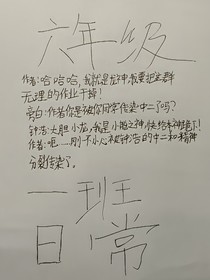 六年级
作者:哈哈哈,我就是龙神,我要把这群
无理的作业干掉!
旁白:作者你是被你同学传染中二了吗?
钟浩:大胆小龙,我是小猫之神,快给本神跪下!
作者:呃……刚才不小心被钟浩的中二和精神
分裂传染了。
一班
日常